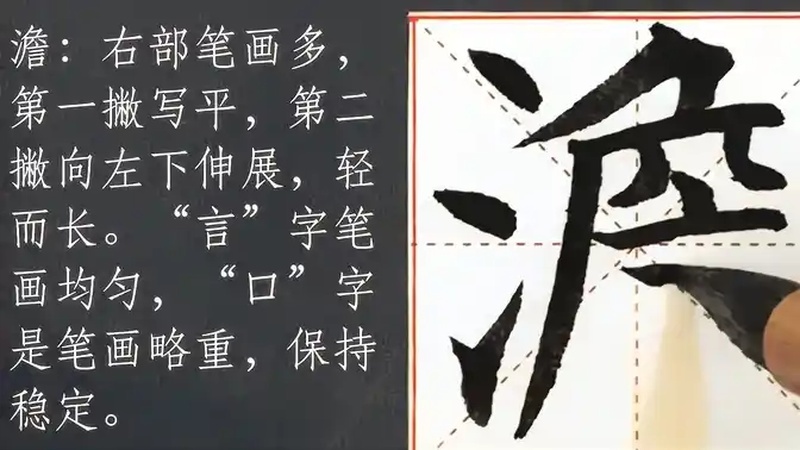 澹：右部笔画多，
第一撇写平，第二
撇向左下伸展，轻
而长。“言”字笔
画均匀，“口”字
是笔画略重，保持
稳定。